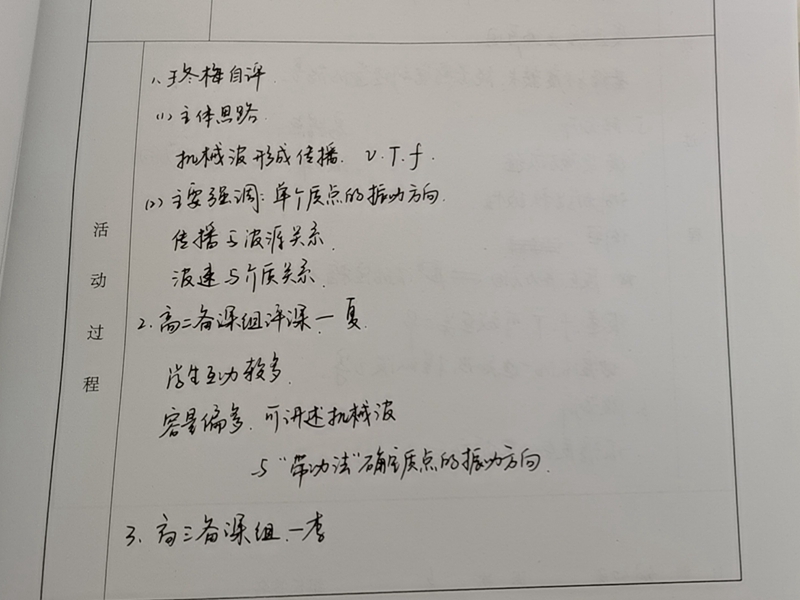 活动过程
1、王冬梅自评
(1) 主体思路
机械波形成传播. v.T.f.
(2) 主要强调:单个质点的振动方向.
传播与波源关系.
波速与介质关系.
2.高二备课组评课一夏
学生互动较多.
容量偏多.可讲述机械波
与“带动法”确定质点的振动方向.
3.高三备课组.一李